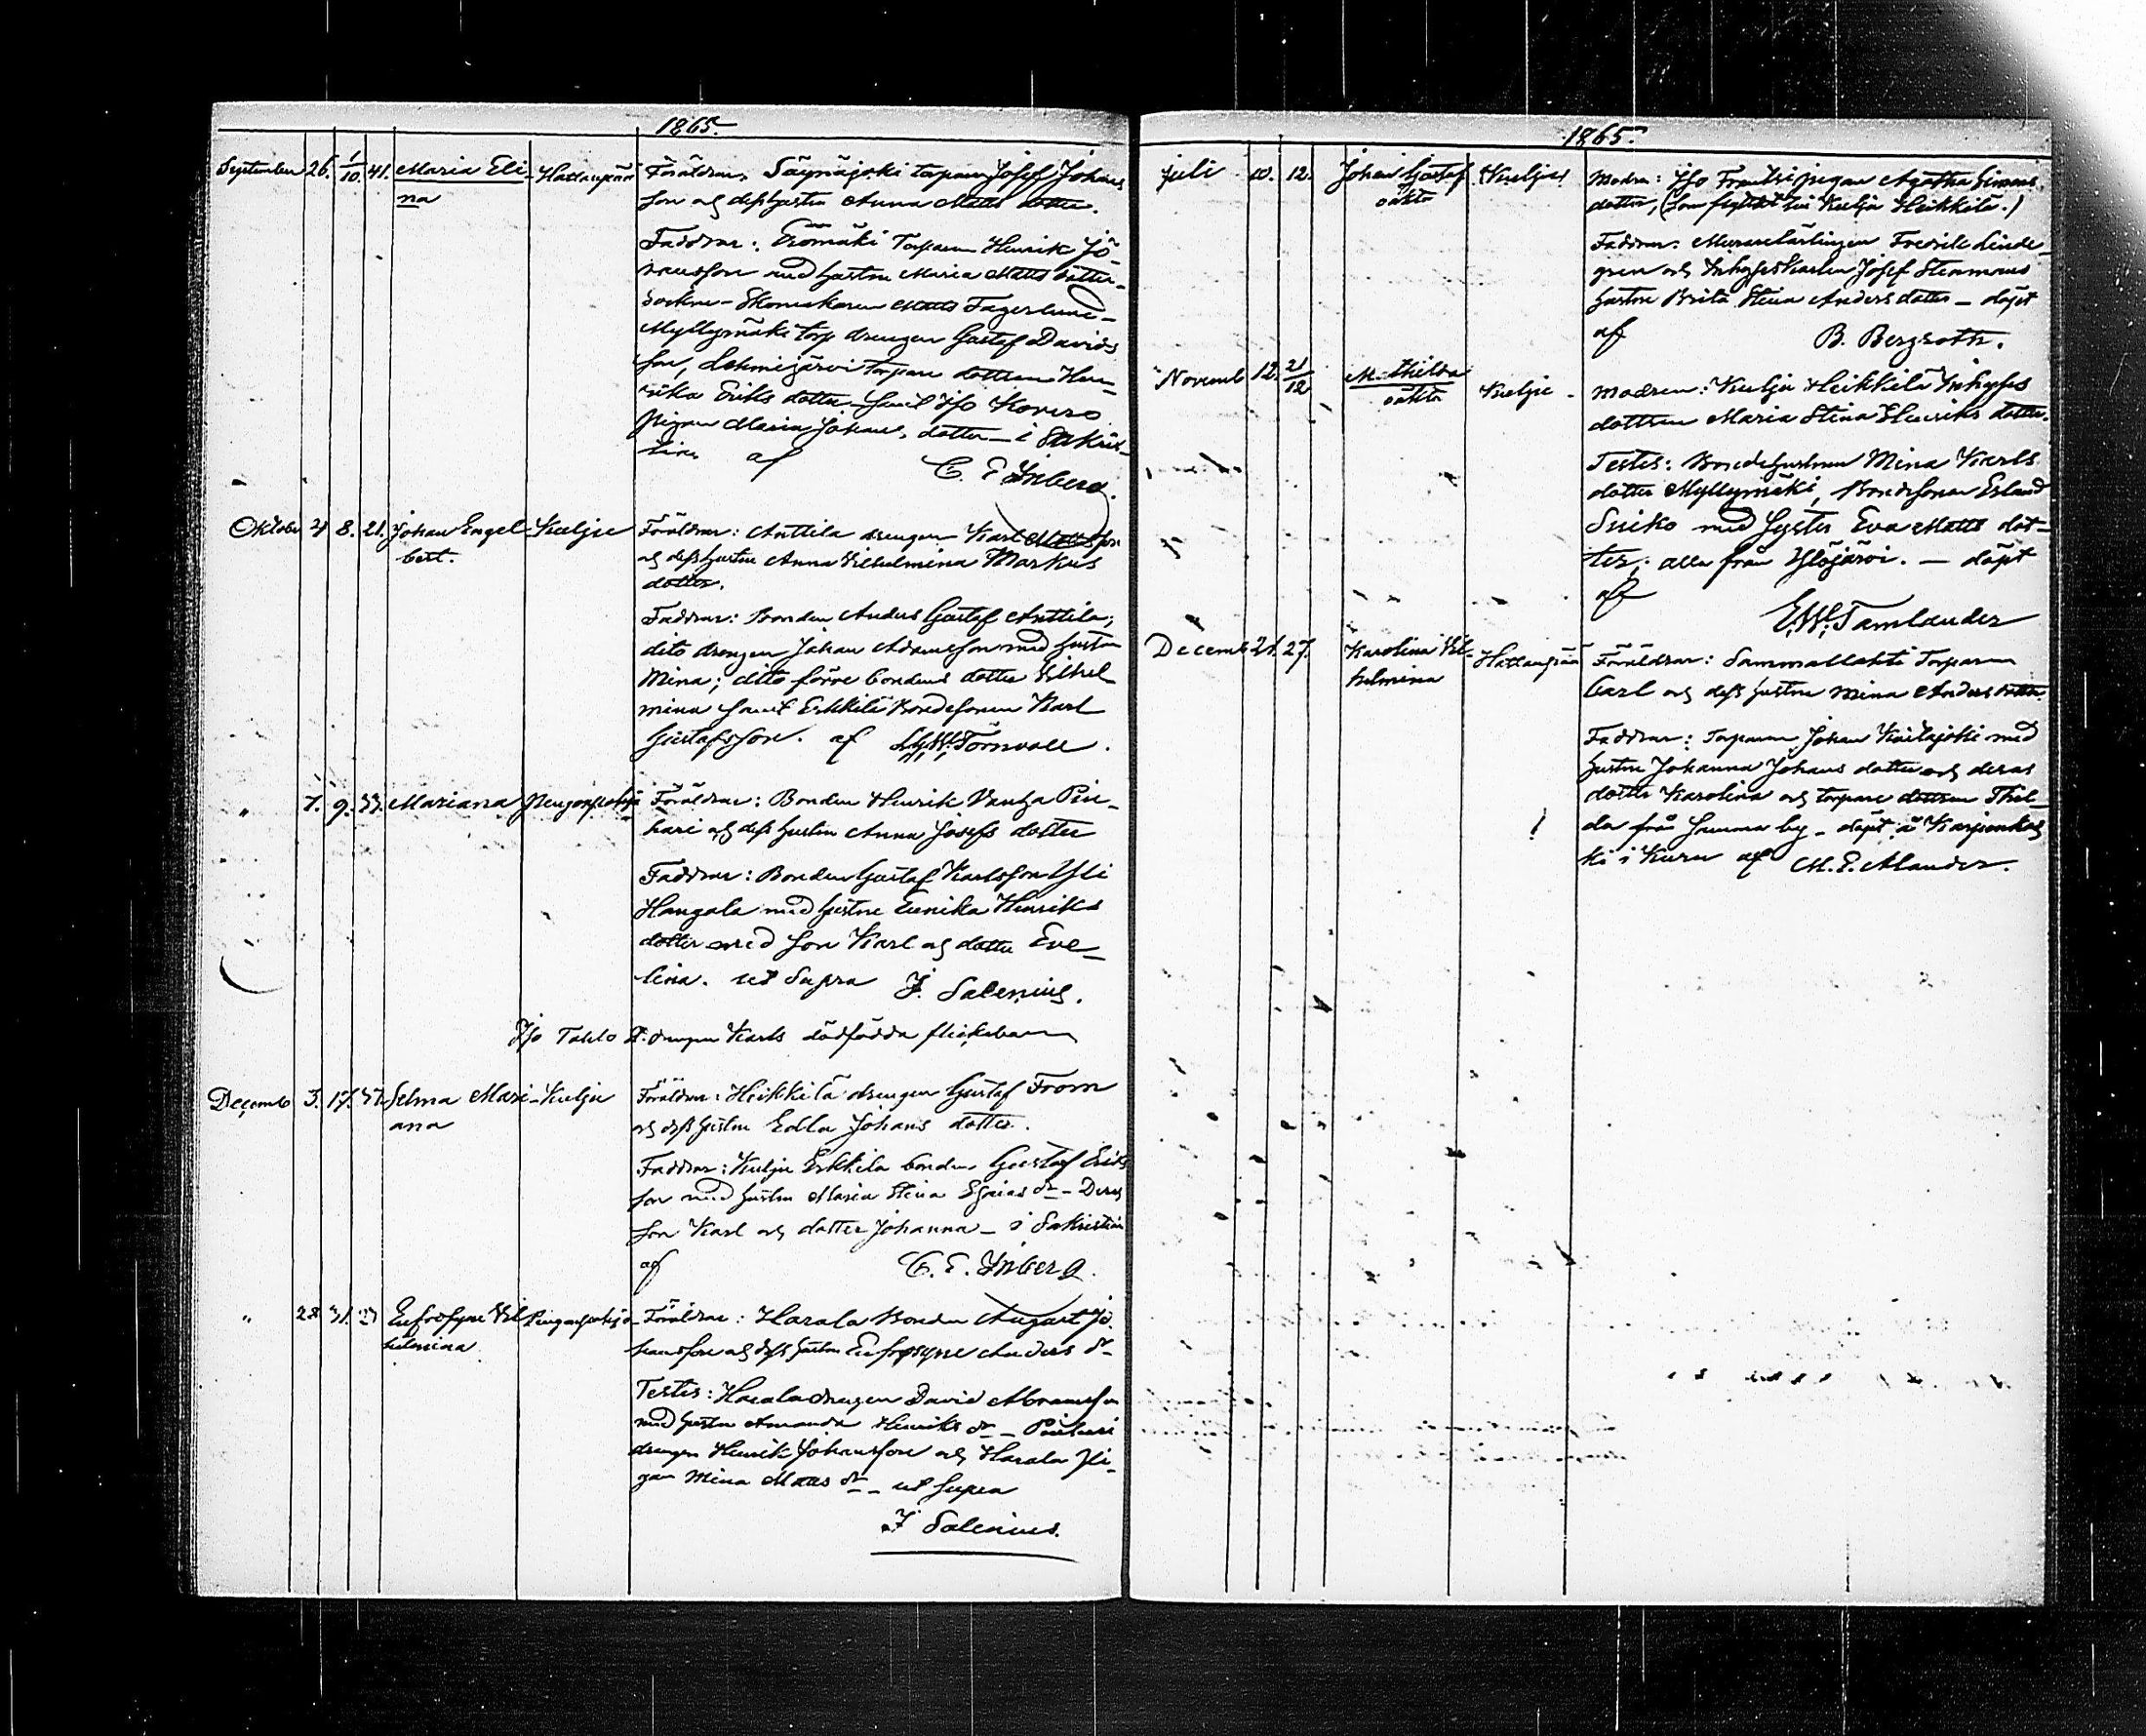 1865.
September 26. 1/10. 41. Maria Eli- Hattanpää Föräldrar, Säynäjoki torparn Josef Johans
na son och dess hustru Anna Matts dotter.
Faddrar: Torparn Henrik Jo-
hansson med hustru Maria Matts dotter
Sockne-Skomakaren Matts Fagerlund –
Myllymäki torp drengen Gustaf Davids
son, Lehmijärvi torpare dottren Hen-
rika Eriks dotter samt Iso Kovero
pigan Maria Johans dotter – i Sakris-
tian af C. E. Inberg.
Oktober 4 8. 21. Johan Engel- Kulju Föräldrar: Anttila drengen Karl Mattsson
bert. och dess hustru Anna Vilhelmina Markus
dotter.
Faddrar: Bonden Anders Gustaf Anttila;
dito drengen Johan Adamsson med hustru
Mina; dito förre bondens dotter Vilhel
mina samt Erkkilä Bondesonen Karl
Gustafsson. af Törnvall.
" 7. 9. 33. Mariana Pengonpohja Föräldrar: Bonden Henrik Vantza Pin-
hari och dess hustru Anna Josefs dotter
Faddrar: Bonden Gustaf Karlsson Yli
Hangala med hustru Eunika Henriks
dotter med son Karl och dotter Eve-
lina. ut Supra J. Salenius.
Iso Tahlo drengen Karls dödfödda flickebarn
Decemb 3. 17. 37. Selma Mari- Kulju Föräldrar: Heikkilä drengen Gustaf From
ana och dess hustru Edla Johans dotter.
Faddrar: Kulju Erkkilä bonden Gustaf Eriks
son med hustru Maria Stina Esaias dr – Deras
son Karl och dotter Johanna – i Sakristian
af C. E. Inberg.
" 28 31. Eufrosyne Vil Pengonpohja Föräldrar: Harala Bonden August Jo
helmina hansson och dess hustru Eufrosyne Anders dr
Testes: Harala drengen David Abramsson
med hustru Amanda Henriks dr – Pinhari
drengen Henrik Johansson och Harala Pi-
gan Mina Matts dr – ut supra
J Salenius.
1865.
Juli 10. 12. Johan Gustaf Kulju Modren: Iso Frantsi pigan Agatha Simons
oäkta dotter, (som flyttat till Kulju Heikkilä.)
Faddrar: Murarelärlingen Fredrik Linde-
gren och Inhyseskarlen Josef Stenmans
hustru Brita Stina Anders dotter – döpt
af B. Bergroth.
Novemb 12. 21/12 Mathilda Kulju – Modren: Kulju Heikkilä Inhyses
oäkta dottren Maria Stina Henriks dotter.
Testes: Bondehustrun Mina Karls
dotter Myllymäki, Bondesonen Erland
Suiko med Syster Eva Matts dot-
ter; alla från Ylöjärvi. – döpt
af Tamlander
Decemb 21. 27. Karolina Vil- Hattanpää Föräldrar: Sammallahti Torparen
helmina Carl och dess hustru Mina Anders dotter.
Faddrar: Torparen Johan med
hustru Johanna Johans dotter och deras
dotter Karolina och torpare dottren Thil-
da från samma by – döpt å
ki i Kuru af M. E. Alander.